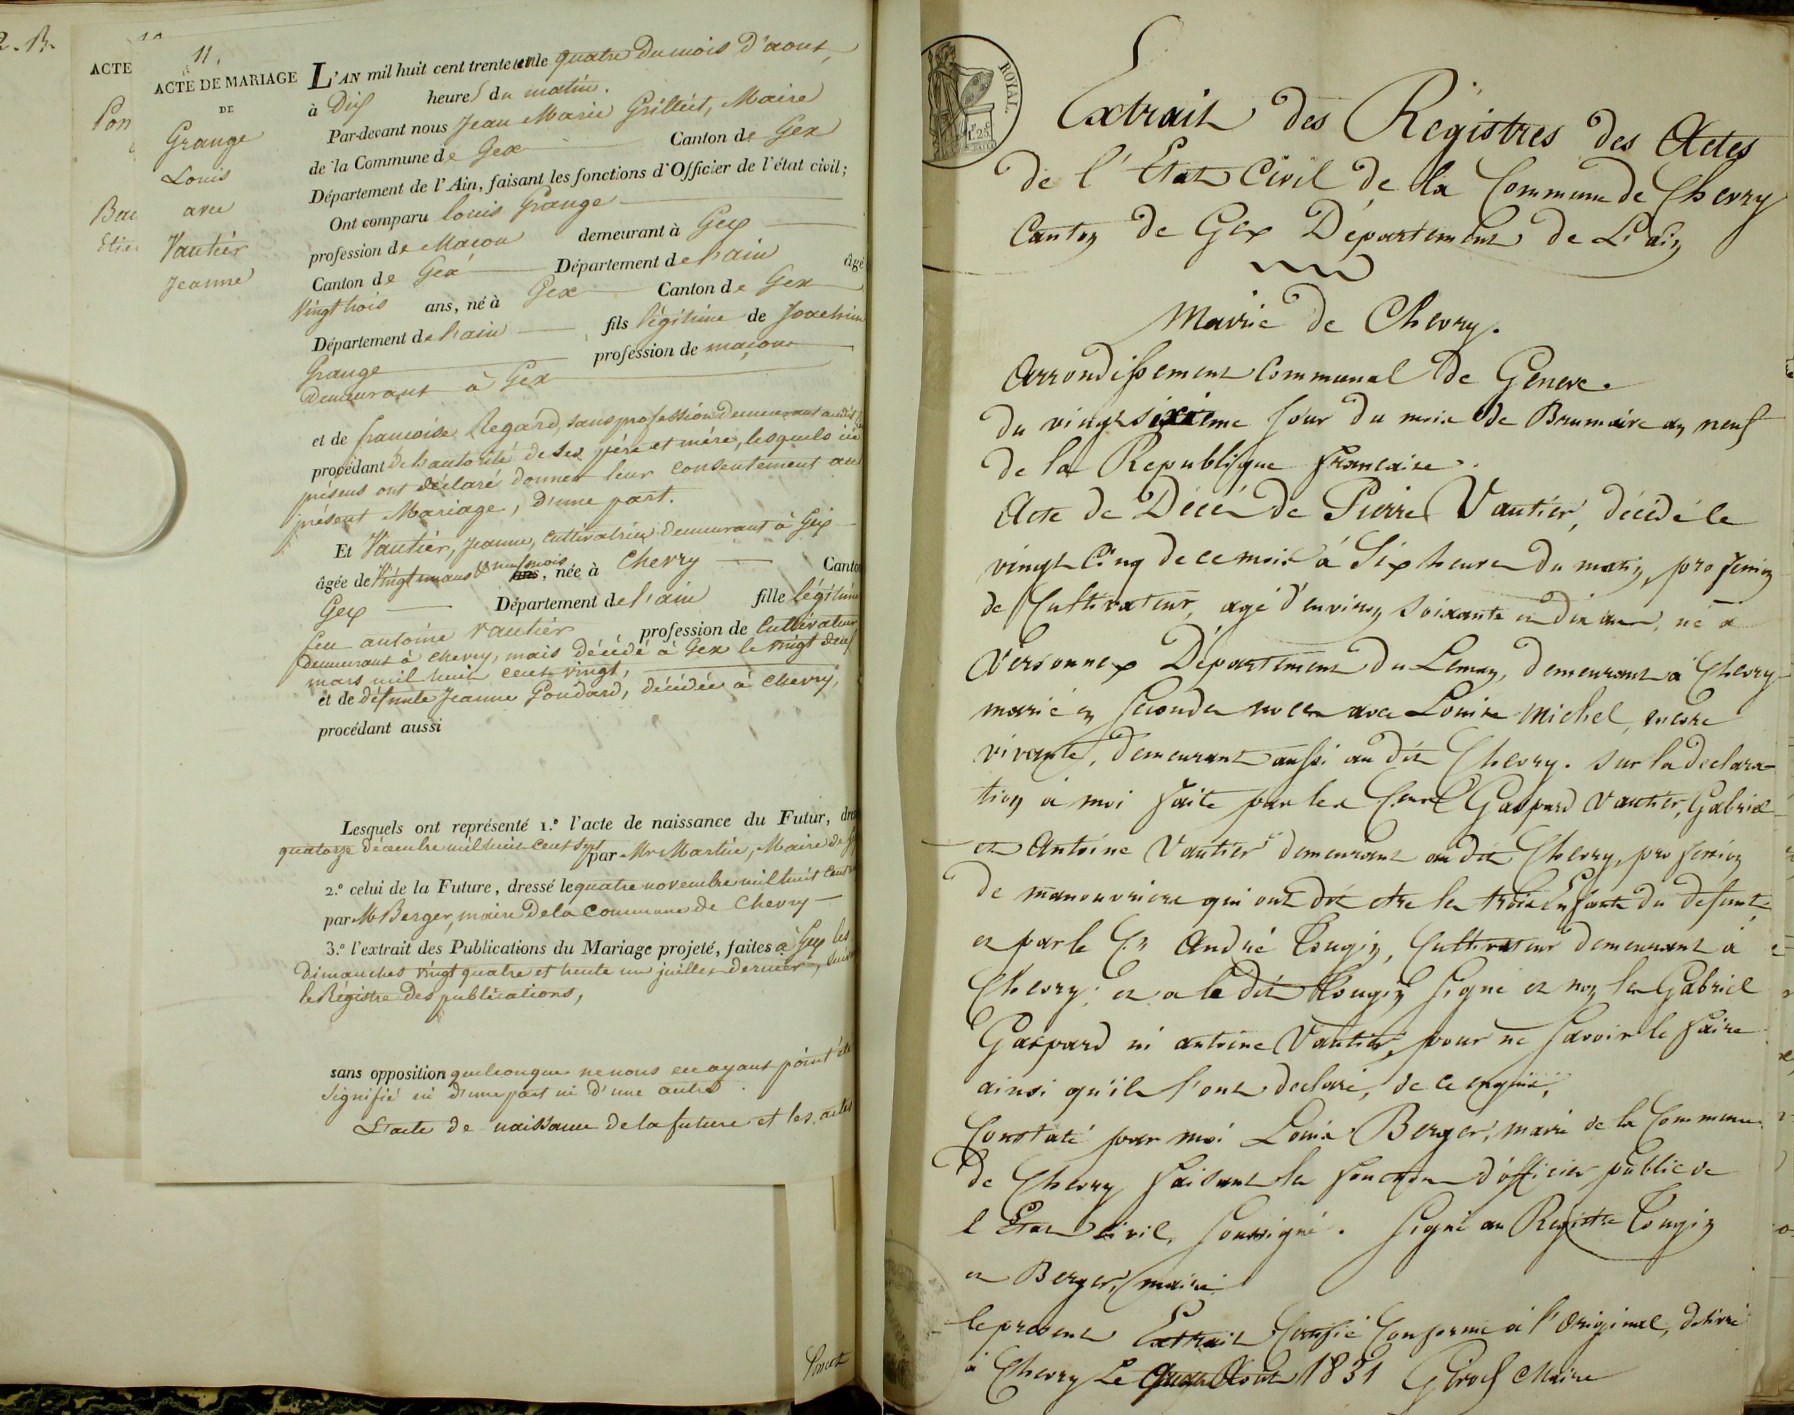 2. B.
ACTE
Pon
Bau
Etie
11.
ACTE DE MARIAGE
DE
Grange
Louis
avec
Vautier
Jeanne
L'AN mil huit cent trente et un le quatre du mois d'aout,
à Dix heures du matin.
Par-devant nous Jean Marie Grillet, Maire
de la Commune de Gex Canton de Gex
Département de l'Ain, faisant les fonctions d'Officier de l'état civil;
Ont comparu Louis Grange
profession de Macon demeurant à Gex
Canton de Gex Département de l'ain âgé
Vingt trois ans, né à Gex Canton de Gex
Département de l'ain fils légitime de Joachim
Grange profession de maçon
Demeurant à Gex
et de francoise Regard, sans profession Demeurant audit
procédant De l'autorité de ses père et mère, lesquels ici
présens ont déclaré donner leur consentement au
présent Mariage, D'une part.
Et Vautier, Jeanne, cultivatrice demeurant à Gex
âgée de Vingt un ans & neuf mois ans, née à Chevry Canton
Gex Département de l'ain fille légitime
feu antoine Vautier profession de Cultivateur
Demeurant à chevry, mais décédé à Gex le vingt deux
mars mil huit cent vingt,
et de défunte Jeanne Goudard, décédée à Chevry,
procédant aussi
Lesquels ont représenté 1.° l'acte de naissance du Futur, dre
quatorze décembre mil huit cent sept par Mr Martin, Maire de G
2.° celui de la Future, dressé le quatre novembre mil huit cent
par M Berger, maire De la Commune de Chevry
3.° l'extrait des Publications du Mariage projeté, faites à Gex les
Dimanches vingt quatre et trente un juillet Dernier,
le Régistre Des publications,
sans opposition quelconque ne nous en ayant point été
signifié ni d'une part ni d'une autre.
L'acte de naissance de la future et les actes
ROYAL
1F 25c
Extrait des Régistres des Actes
de l'Etat Civil de la Commune de Chevry
Canton de Gex Département de L'ain
Mairie de Chevry.
Arrondissement Communal de Geneve.
du vingt sixième Jour du mois de Brumaire an neuf
de la Republique francaise.
Acte de Décé de Pierre Vautier, décédé le
vingt Cinq de ce mois à Six heure du matin, profession
de Cultivateur, agé d'environ soixante en dix ans, né à
Versonnex Département du Leman, demeurant à Chevry
marié en seconde noces avec Louise Michel, encore
vivante, demeurant aussi au dit Chevry. sur la declara-
tion à moi faite par les Gaspard Vautier, Gabriel
et Antoine Vautier demeurant au dit Chevry, profession
de manouvriers qui ont dit etre les trois Enfants du defunt,
et par le Cn André Tougin, Cultivateur demeurant à
Chevry; et a le dit Tougin signé et non les Gabriel
Gaspard ni antoine Vautier, pour ne savoir le faire
ainsi qu'ils l'ont declaré, de ce enquis,
Constaté par moi Louis Berger, maire de la Commune
de Chevry faisant les fonction d'officier public de
l'Etat civil, soussigné. Signé au Registre Tougin
et Berger, maire
le present Extrait Certifié Conforme à l'Original, délivré
à Chevry Le Aout 1831 Maire